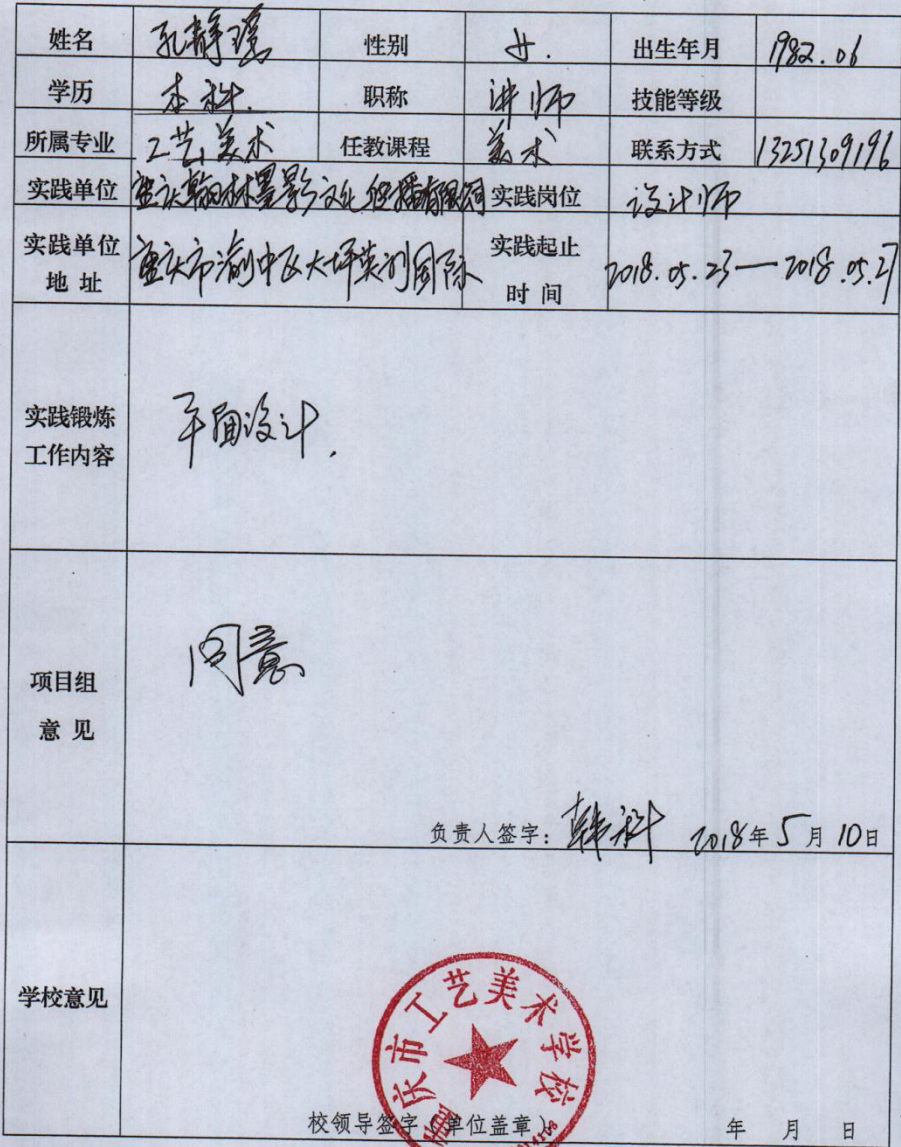 姓名 孔静瑶 性别 女. 出生年月 1982.06
学历 本科. 职称 讲师 技能等级
所属专业 工艺美术 任教课程 美术 联系方式 13251309196
实践单位 重庆翰林墨影文化传播有限公司 实践岗位 设计师
实践单位 地 址 重庆市渝中区大坪英利国际 实践起止 时 间 2018.05.23—2018.05.27
实践锻炼
工作内容
平面设计.
项目组
意 见
同意
负责人签字: 韩科 2018年5月10日
学校意见
重庆市工艺美术学校
校领导签字(单位盖章) 年 月 日